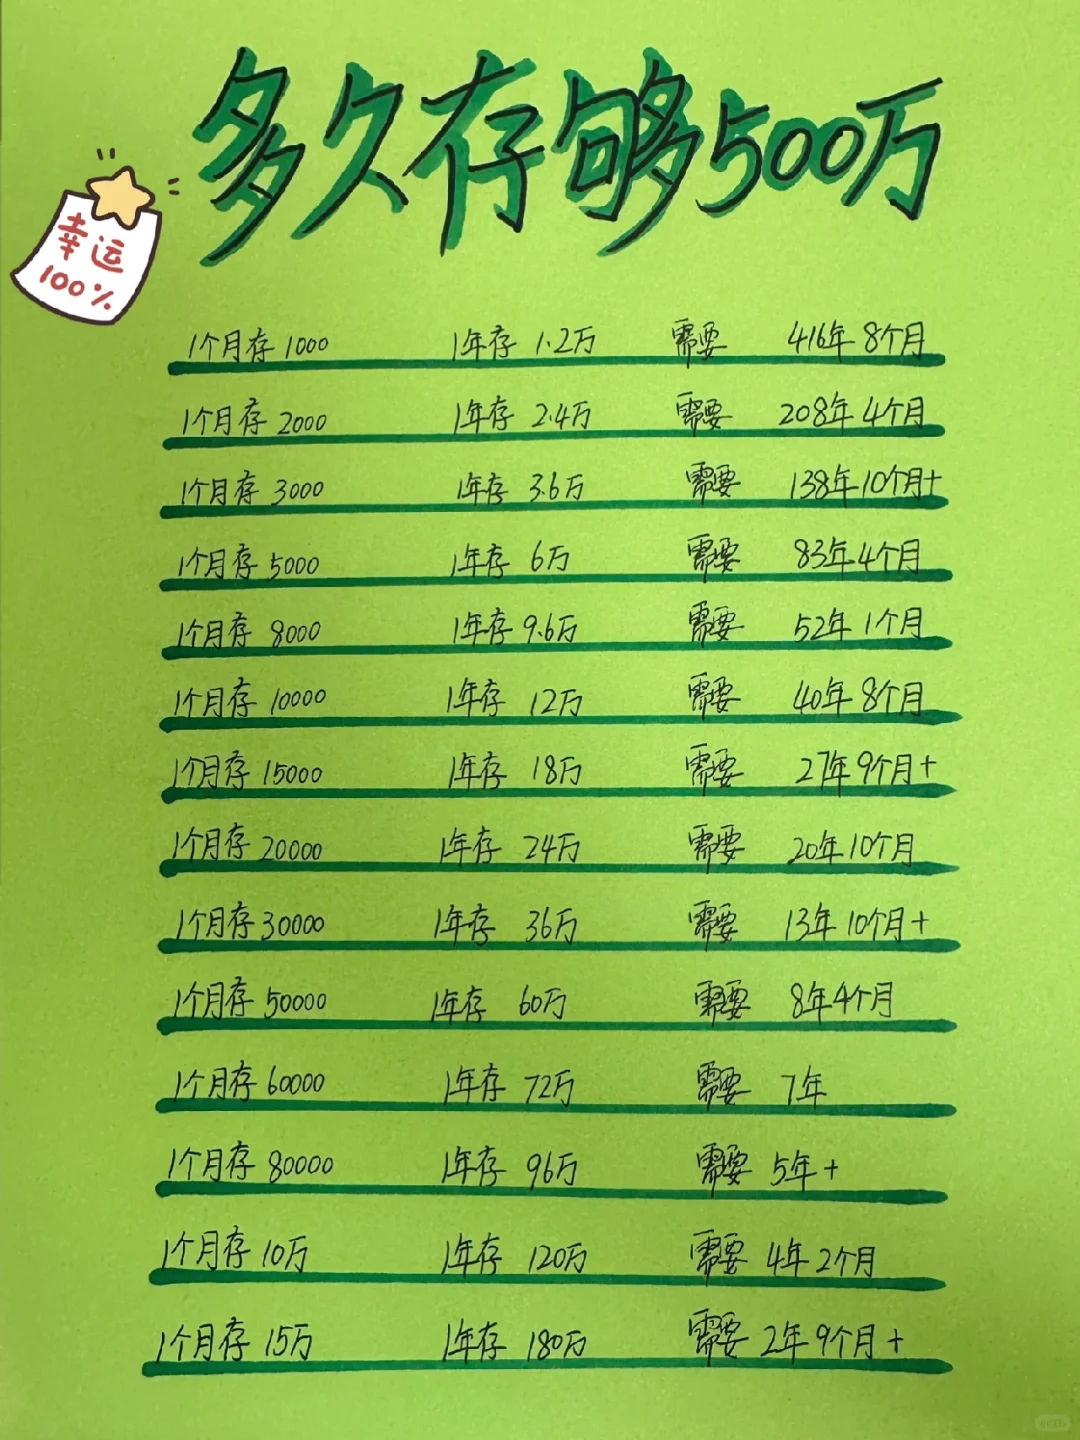 多久存够500万
幸运
100%
1个月存 1000 1年存 1.2万 需要 416年 8个月
1个月存 2000 1年存 2.4万 需要 208年 4个月
1个月存 3000 1年存 3.6万 需要 138年 10个月+
1个月存 5000 1年存 6万 需要 83年 4个月
1个月存 8000 1年存 9.6万 需要 52年 1个月
1个月存 10000 1年存 12万 需要 40年 8个月
1个月存 15000 1年存 18万 需要 27年 9个月+
1个月存 20000 1年存 24万 需要 20年 10个月
1个月存 30000 1年存 36万 需要 13年 10个月+
1个月存 50000 1年存 60万 需要 8年4个月
1个月存 60000 1年存 72万 需要 7年
1个月存 80000 1年存 96万 需要 5年+
1个月存 10万 1年存 120万 需要 4年 2个月
1个月存 15万 1年存 180万 需要 2年 9个月+